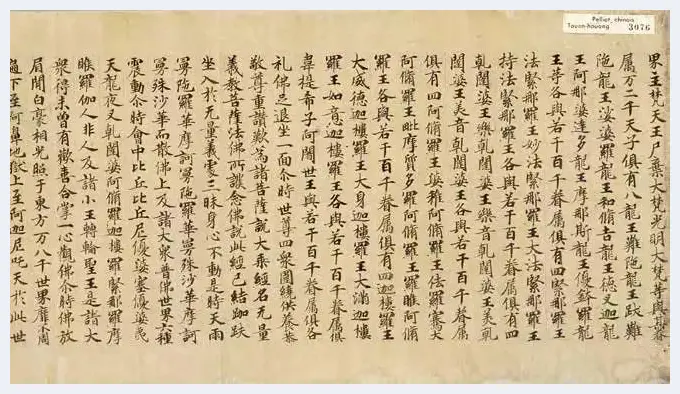 Pelliot chinois
Touen-houang
3076
界主梵天王尸棄大梵光明大梵等與其眷
属万二千天子俱有八龍王難陁龍王跋難
陁龍王娑婆羅龍王和脩吉龍王德叉迦龍
王阿那婆達多龍王摩那斯龍王優鉢羅龍
王等各與若干百千眷属俱有四緊那羅王
法緊那羅王妙法緊那羅王大法緊那羅王
持法緊那羅王各與若干百千眷属俱有四
乹闥婆王樂乹闥婆王樂音乹闥婆王美乹
闥婆王美音乹闥婆王各與若干百千眷属
俱有四阿脩羅王婆稚阿脩羅王佉羅騫大
阿脩羅王毗摩質多羅阿脩羅王羅睺阿脩
羅王各與若干百千眷属俱有四迦樓羅王
大威德迦樓羅王大身迦樓羅王大滿迦樓
羅王如意迦樓羅王各與若干百千眷属俱
韋提希子阿闍世王與若干百千眷属俱各
礼佛足退坐一面尒時世尊四衆圍繞供養恭
敬尊重讃歎為諸菩薩說大乘經名无量
義教菩薩法佛所護念佛說此經已結跏趺
坐入於无量義處三昧身心不動是時天雨
曼陁羅華摩訶曼陁羅華曼殊沙華摩訶
曼殊沙華而散佛上及諸大衆普佛世界六種
震動尒時會中比丘比丘尼優婆塞優婆夷
天龍夜叉乹闥婆阿脩羅迦樓羅緊那羅摩
睺羅伽人非人及諸小王轉輪聖王是諸大
衆得未曾有歡喜合掌一心觀佛尒時佛放
眉間白豪相光照于東方万八千世界靡不周
遍下至阿鼻地獄上至阿迦尼吒天於此世